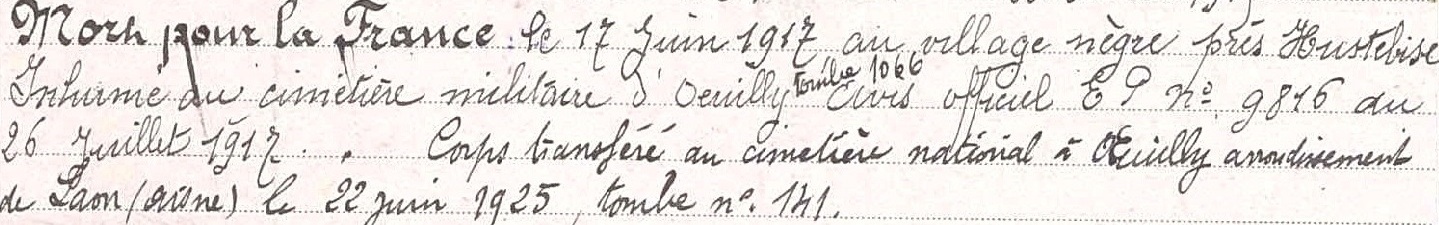 Mort pour la France le 17 Juin 1917 au village nègre près Hustebise
Inhumé au cimetière militaire d'Oeuilly tombe 1066 Avis officiel E P nº 9816 du
26 Juillet 1917. Corps transféré au cimetière national à Oeuilly arrondissement
de Laon (Aisne) le 22 juin 1925, tombe nº. 141.